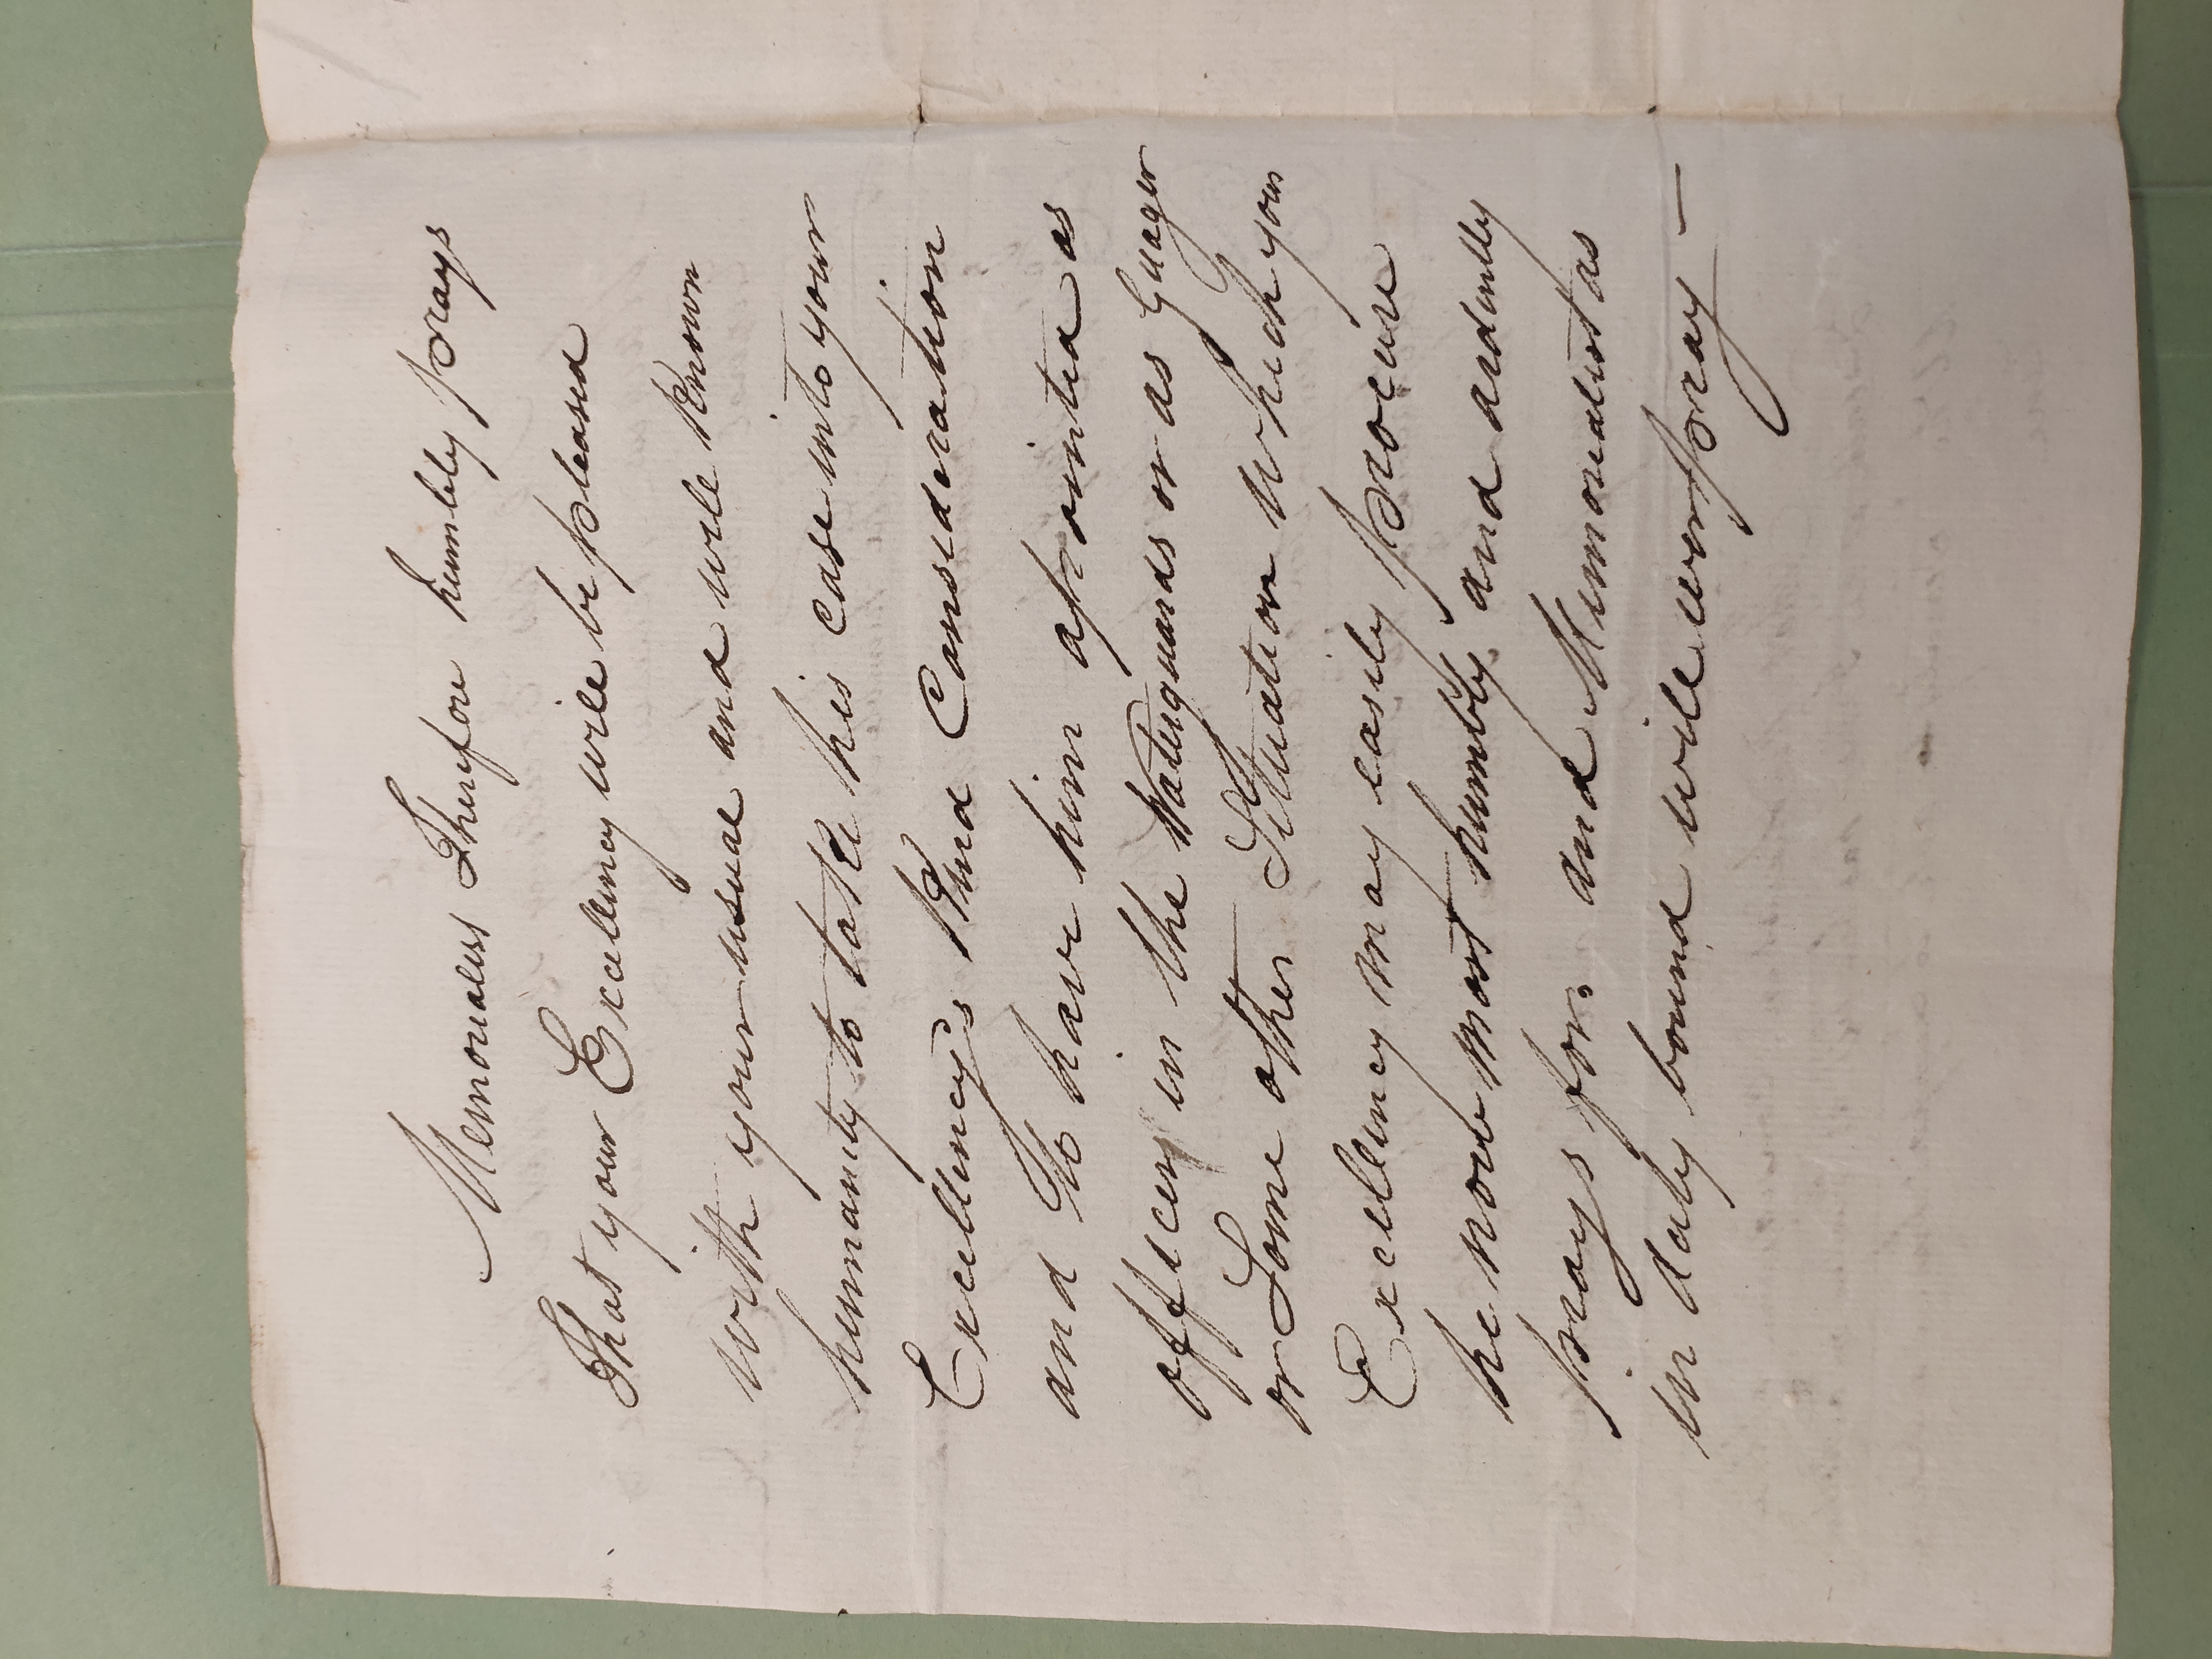 Memorialist Therefore humbly prays
That your Excellency will be pleased
with your usual and well known
humanity to take his case into your
Excellency's Kind Consideration
and to have him apointed as
officer in the Waterguards or as Guager
or Some other Situation which your
Excellency may easily procure
he now most humbly and ardently
prays for. and Memorialist as
in duty bound will ever pray —